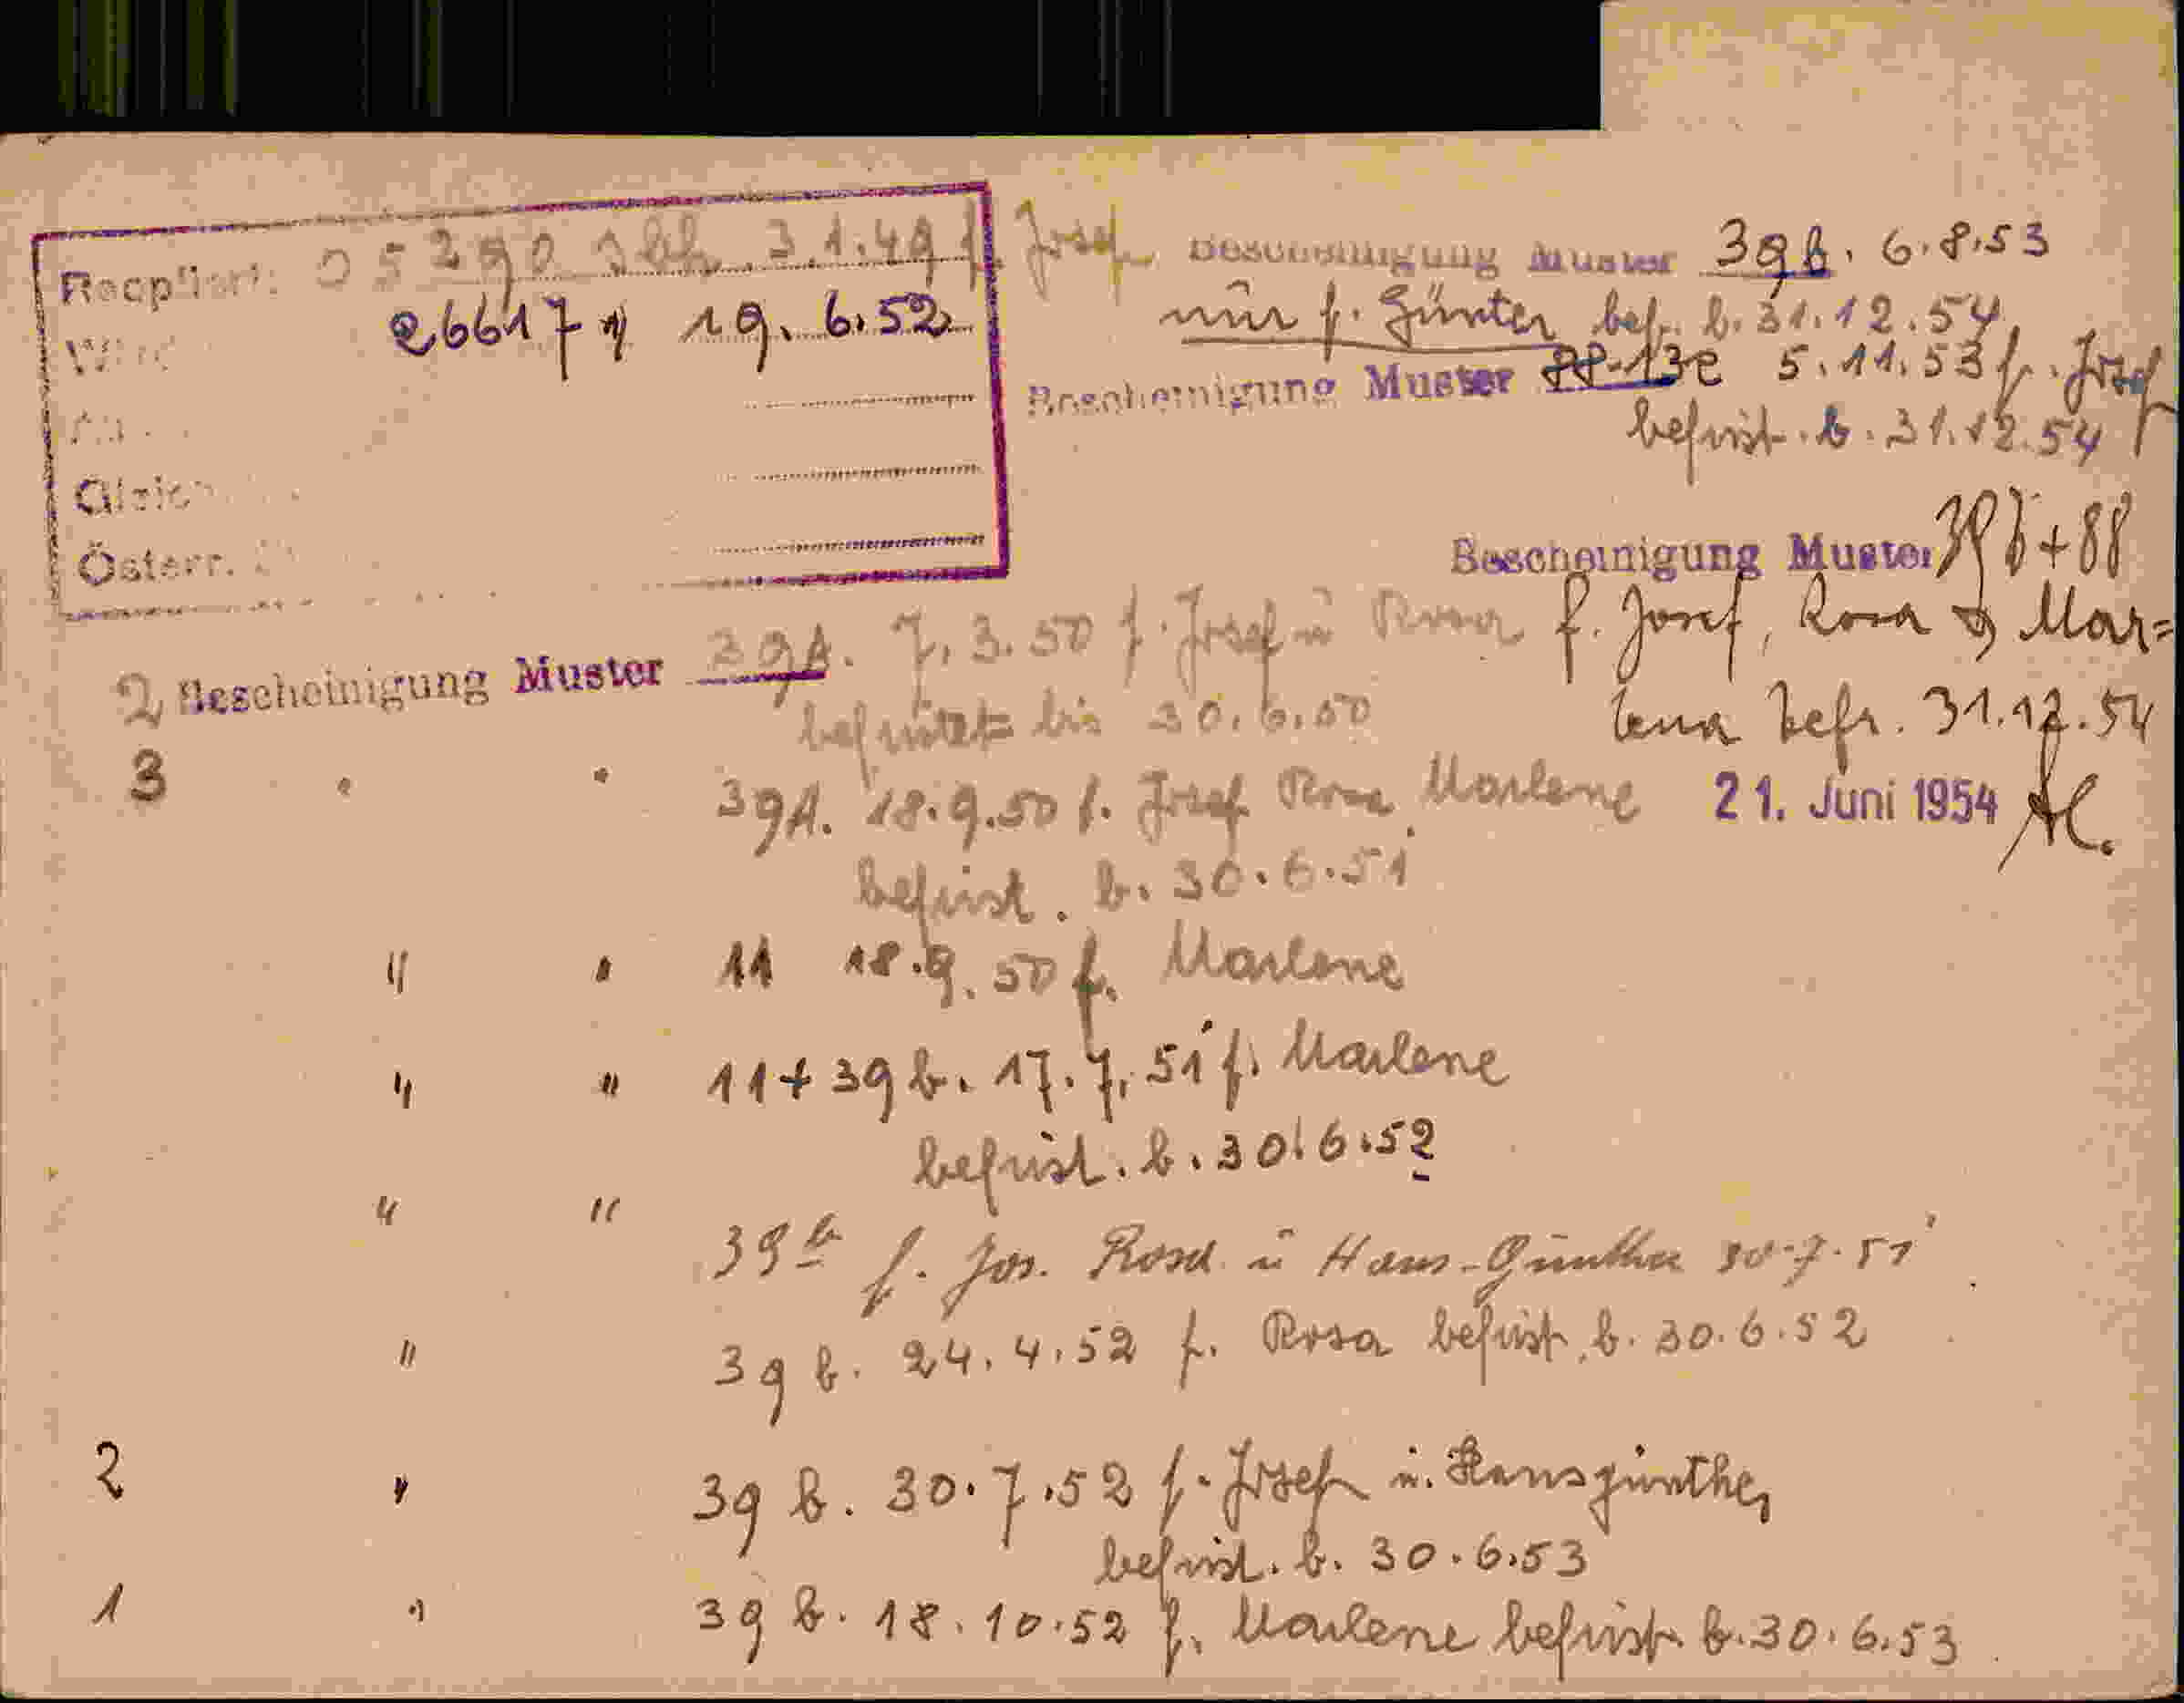 Recpliert: 05290 3.1.49 f. Josef
26617 19. 6. 52
Gleich
Österr.
Bescheinigung Muster 39b. 6.8.53
nur f. Günter bef. b. 31.12.54
Bescheinigung Muster 88-13e 5.11.53 f. Josef
befrist. b. 31.12.54
Bescheinigung Muster 39b+88
f. Josef, Rosa & Mar=
lena befr. 31.12.54
21. Juni 1954
2 Bescheinigung Muster 39A. 7.3.50 f. Josef u Rosa
befristet bis 30.6.50
3 " " 39A. 18.9.50 f. Josef Rosa Marlene
befrist. b. 30.6.51
" " 11 18.9.50 f. Marlene
" " 11+39b. 17.7.51 f. Marlene
befrist. b. 30.6.52
" " 39b f. Jos. Rosa u Hans-Günther 30.7.51
" 39b. 24.4.52 f. Rosa befrist. b. 30.6.52
2 " 39b. 30.7.52 f. Josef u. Hansgünther
befrist. b. 30.6.53
1 " 39b. 18.10.52 f. Marlene befrist. b. 30.6.53